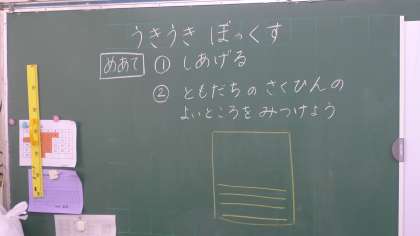 うきうき ぼっくす
めあて ① しあげる
② ともだちの さくひんの
よいところを みつけよう